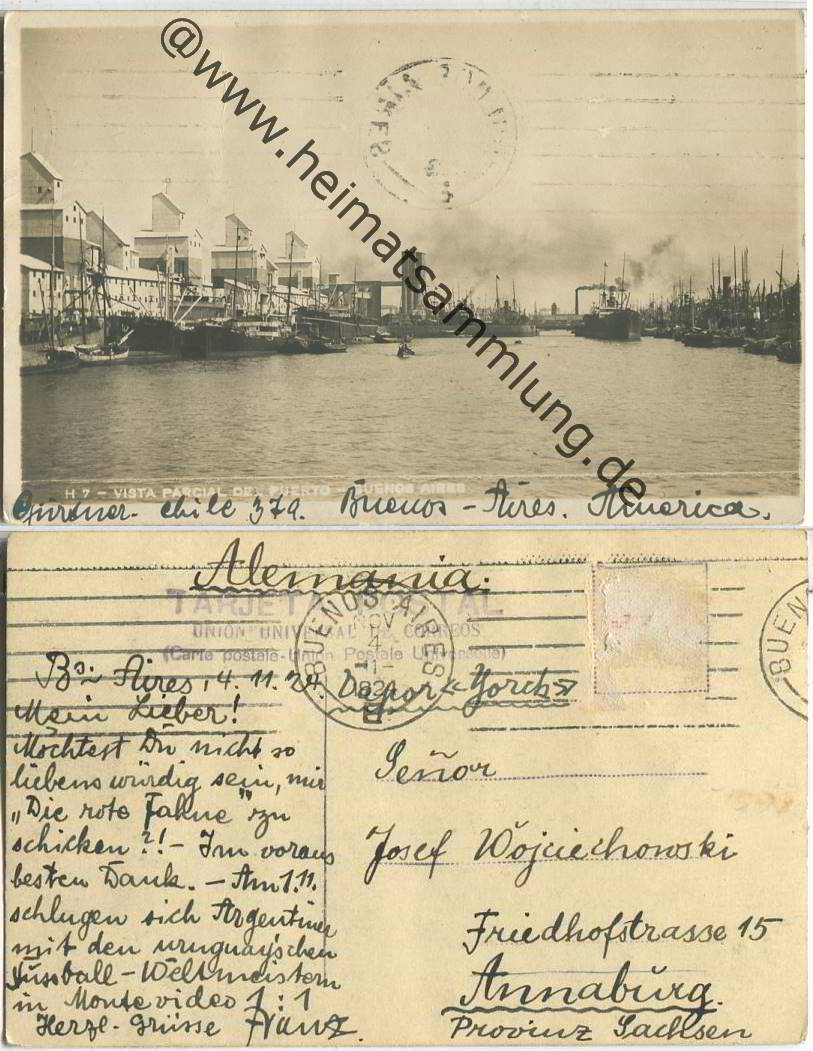 @www.heimatsammlung.de
AIRES
H 7 - VISTA PARCIAL DEL PUERTO BUENOS AIRES
Gürtner. Chile 379. Buenos-Aires. America.
Alemania.
TARJETA POSTAL
UNION UNIVERSAL DE CORREOS
(Carte postale-Union Postale Universelle)
BUENOS AIRES
NOV
4
BUEN
Bs. Aires, 4.11.24.
Mein Lieber!
Möchtest Du nicht so
liebenswürdig sein, mir
„Die rote Fahne" zu
schicken?!- Im voraus
besten Dank. - Am 1.11.
schlugen sich Argentinier
mit den uruguay'schen
Fussball-Weltmeistern
in Montevideo 1:1
Herzl. Grüsse Franz.
Vapor «Yorck»
Señor
Josef Wojciechowski
Friedhofstrasse 15
Annaburg.
Provinz Sachsen